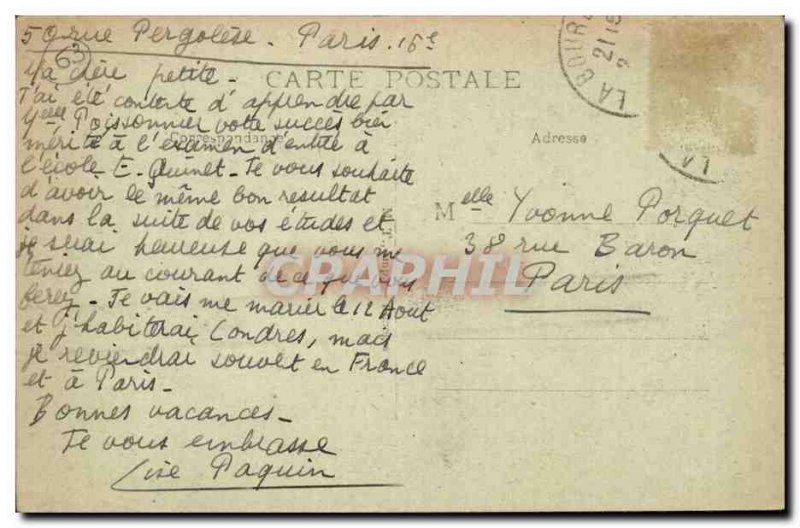 50 rue Pergolèse. Paris. 16e
63
Ma chère petite -
CARTE POSTALE
J'ai été contente d'apprendre par
Melle Poissonnier votre succès bien
Correspondance
Adresse
mérité à l'examen d'entrée à
l'école E. Quinet - Je vous souhaite
d'avoir le même bon resultat
dans la suite de vos études et
je serai heureuse que vous me
teniez au courant de ce que vous
ferez - Je vais me marier le 12 Aout
et j'habiterai Londres, mais
je reviendrai souvet en France
et à Paris -
Bonnes vacances -
Je vous embrasse
Lise Paquin
Melle Yvonne Porquet
38 rue Baron
Paris
LA BOUR
21
LA
CPAPHIL